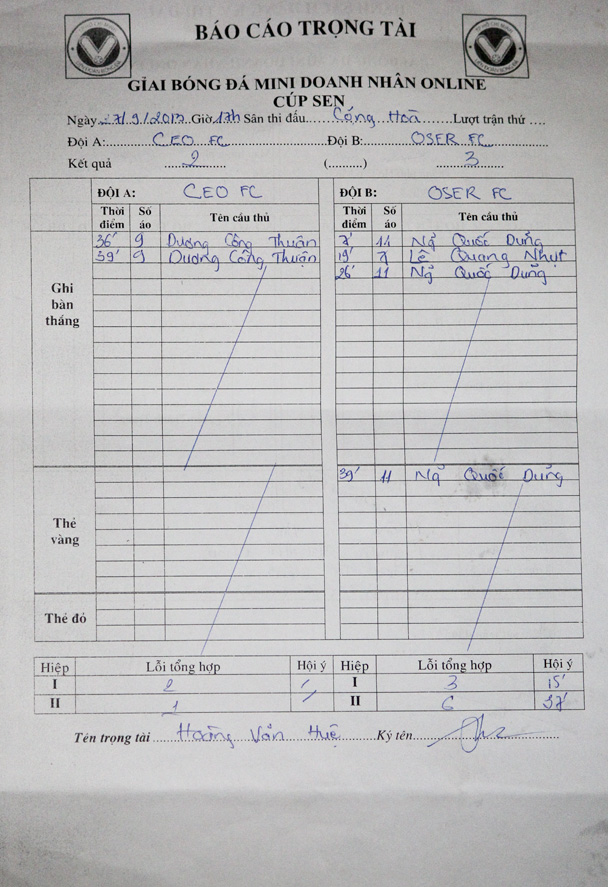 BÁO CÁO TRỌNG TÀI
GIẢI BÓNG ĐÁ MINI DOANH NHÂN ONLINE
CÚP SEN
Ngày 7/9/2013 Giờ 17h Sân thi đấu Cộng Hoà Lượt trận thứ ....
Đội A: CEO FC Đội B: OSER FC
Kết quả 2 (..........) 3
ĐỘI A: CEO FC ĐỘI B: OSER FC
Thời điểm Số áo Tên cầu thủ Thời điểm Số áo Tên cầu thủ
Ghi bàn thắng
36' 9 Dương Công Thuận 7' 11 Ngô Quốc Dũng
39' 9 Dương Công Thuận 19' 7 Lê Quang Nhựt
26' 11 Ngô Quốc Dũng
Thẻ vàng
39' 11 Ngô Quốc Dũng
Thẻ đỏ
Hiệp Lỗi tổng hợp Hội ý Hiệp Lỗi tổng hợp Hội ý
I 2 / I 3 15'
II 1 / II 6 37'
Tên trọng tài Hoàng Văn Huệ Ký tên